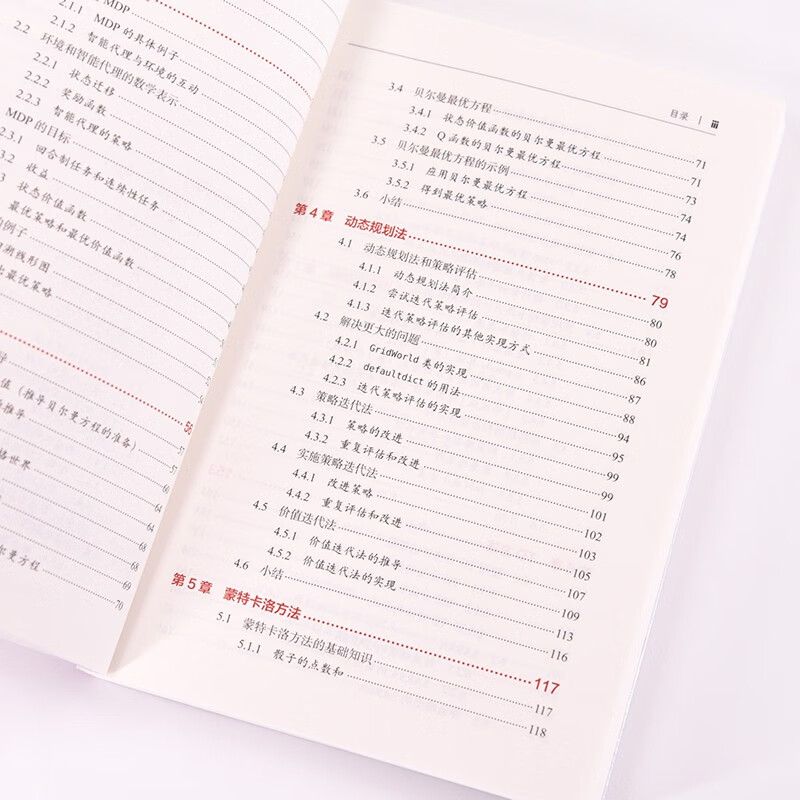 MDP
2.1.1 MDP 的具体例子
2.1.2 智能代理与环境的互动
2.2 环境和智能代理的数学表示
2.2.1 状态迁移
2.2.2 奖励函数
2.2.3 智能代理的策略
MDP 的目标
2.3.1 回合制任务和连续性任务
3.2 收益
3 状态价值函数
最优策略和最优价值函数
例子
溯线形图
出最优策略
导 56
值（推导贝尔曼方程的准备） 57
推导 57
络世界 60
64
64
68
68
尔曼方程 69
70
目录 | iii
3.4 贝尔曼最优方程 71
3.4.1 状态价值函数的贝尔曼最优方程 71
3.4.2 Q 函数的贝尔曼最优方程 73
3.5 贝尔曼最优方程的示例 74
3.5.1 应用贝尔曼最优方程 74
3.5.2 得到最优策略 76
3.6 小结 78
第 4 章 动态规划法 79
4.1 动态规划法和策略评估 80
4.1.1 动态规划法简介 80
4.1.2 尝试迭代策略评估 81
4.1.3 迭代策略评估的其他实现方式 86
4.2 解决更大的问题 87
4.2.1 GridWorld 类的实现 88
4.2.2 defaultdict 的用法 94
4.2.3 迭代策略评估的实现 95
4.3 策略迭代法 99
4.3.1 策略的改进 99
4.3.2 重复评估和改进 101
4.4 实施策略迭代法 102
4.4.1 改进策略 103
4.4.2 重复评估和改进 105
4.5 价值迭代法 107
4.5.1 价值迭代法的推导 109
4.5.2 价值迭代法的实现 113
4.6 小结 116
第 5 章 蒙特卡洛方法 117
5.1 蒙特卡洛方法的基础知识 117
5.1.1 骰子的点数和 118